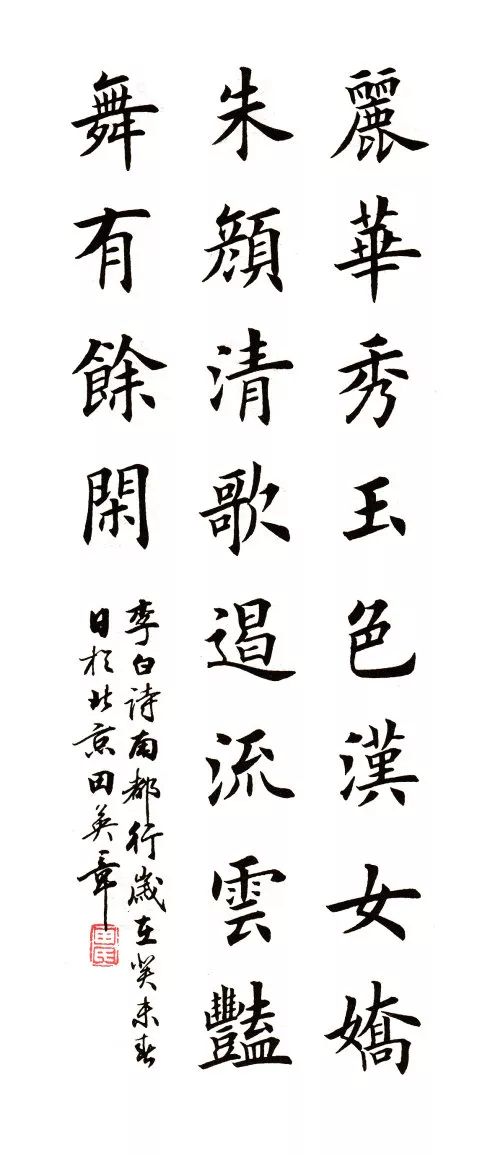 麗華秀玉色漢女嬌
朱顔清歌遏流雲豔
舞有餘閑
李白詩南都行歲在癸未春
日於北京田英章